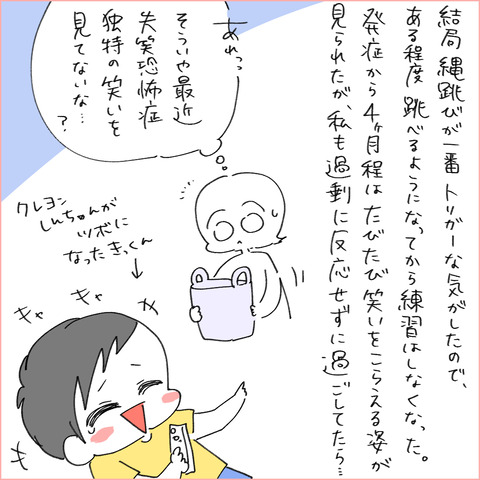 結局 縄跳びが一番 トリガーな気がしたので、
ある程度 跳べるようになってから練習はしなくなった。
発症から4ヶ月程はたびたび笑いをこらえる姿が
見られたが、私も過剰に反応せずに過ごしてたら…
あれっ
そういや最近
失笑恐怖症
独特の笑いを
見てないな…?
クレヨン
しんちゃんが
ツボに
なったきっくん
キャ
キャ